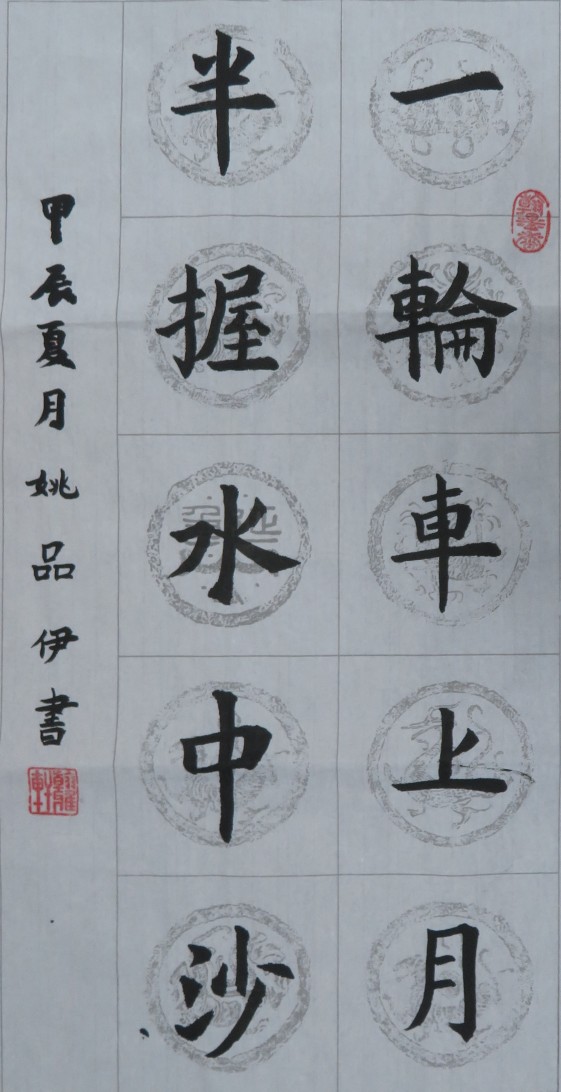 一輪車上月
半握水中沙
甲辰夏月姚品伊書